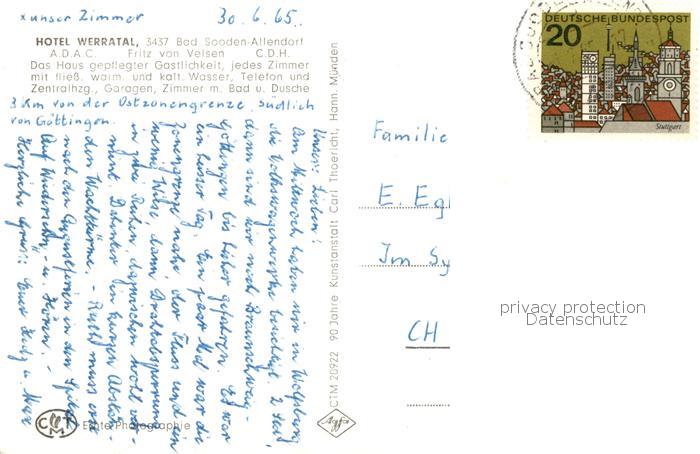 x unser Zimmer 30.6.65.
HOTEL WERRATAL, 3437 Bad Sooden-Allendorf
A.D.A.C. Fritz von Velsen C.D.H.
Das Haus gepflegter Gastlichkeit, jedes Zimmer
mit fließ. warm. und kalt. Wasser, Telefon und
Zentralhzg., Garagen, Zimmer m. Bad u. Dusche
3 Km von der Ostzonengrenze, südlich
von Göttingen.
Unsere Lieben!
Am Mittwoch haben wir in Wolfsburg
die Volkswagenwerke besichtigt. 2 Std.
dann sind wir nach Braunschweig-
Göttingen bis hierher gefahren. Es war
ein heisser Tag. Ein paar Mal war die
Zonengrenze nahe, der Fluss und ein
wenig Wiese, dann Drahtabsperrung
in zwei Reihen, dazwischen wohl ver-
mint. Dahinter in kurzen Abstän-
den Wachttürme. - Ruthli muss erst
nach den Augustferien in den Spital
Auf Wiedersehn - u. Hören. -
Herzliche Grüsse Euer
CTM Echte Photographie
CTM 20922 90 Jahre Kunstanstalt Carl Thoericht, Hann. Münden
Agfa
Familie
E. Egl
Im Sy
CH
DEUTSCHE BUNDESPOST
20
Stuttgart
privacy protection
Datenschutz